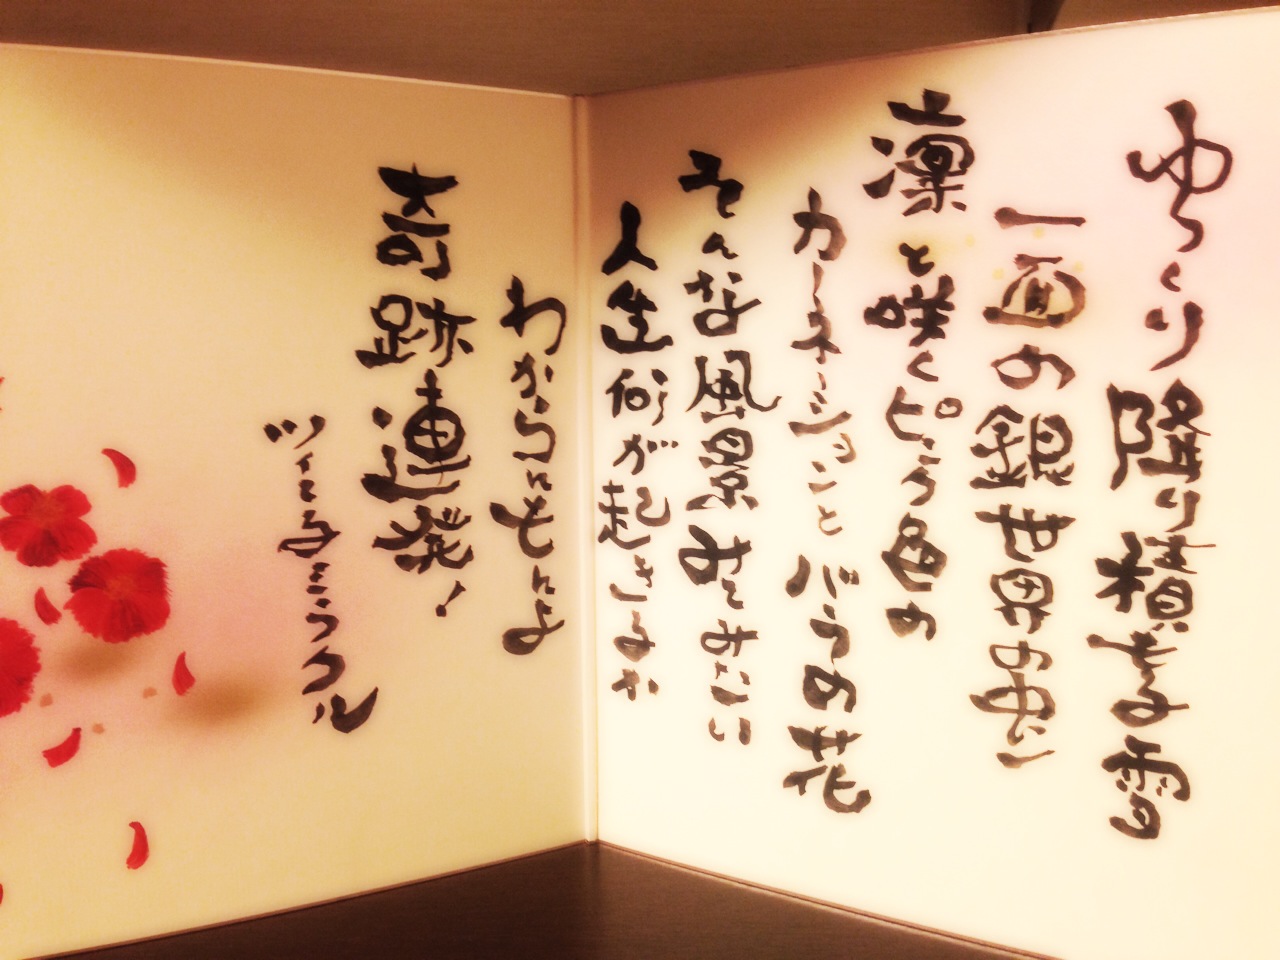 ゆっくり降り積もる雪
一面の銀世界の中に
凛と咲くピンク色の
カーネーションとバラの花
そんな風景みてみたい
人生何が起きるか
わからんもんよ
奇跡連発!
ツイてるミラクル